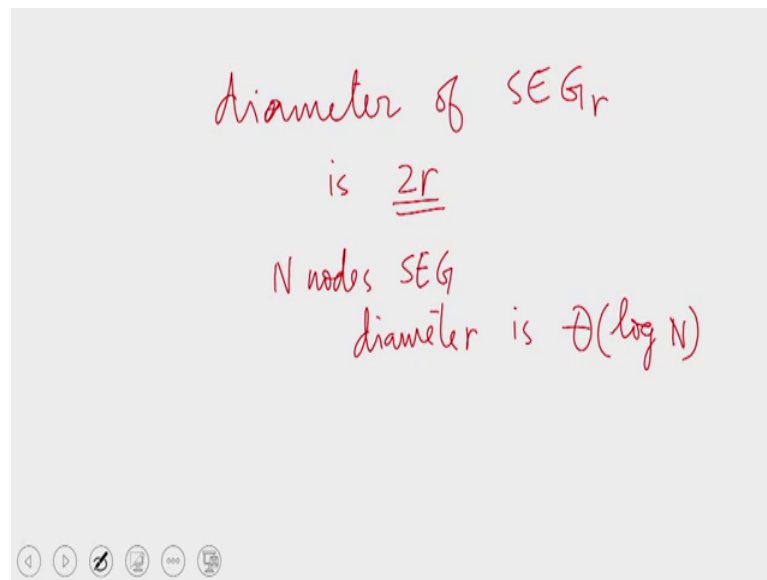 diameter of SEGr
is 2r
N nodes SEG
diameter is θ(log N)